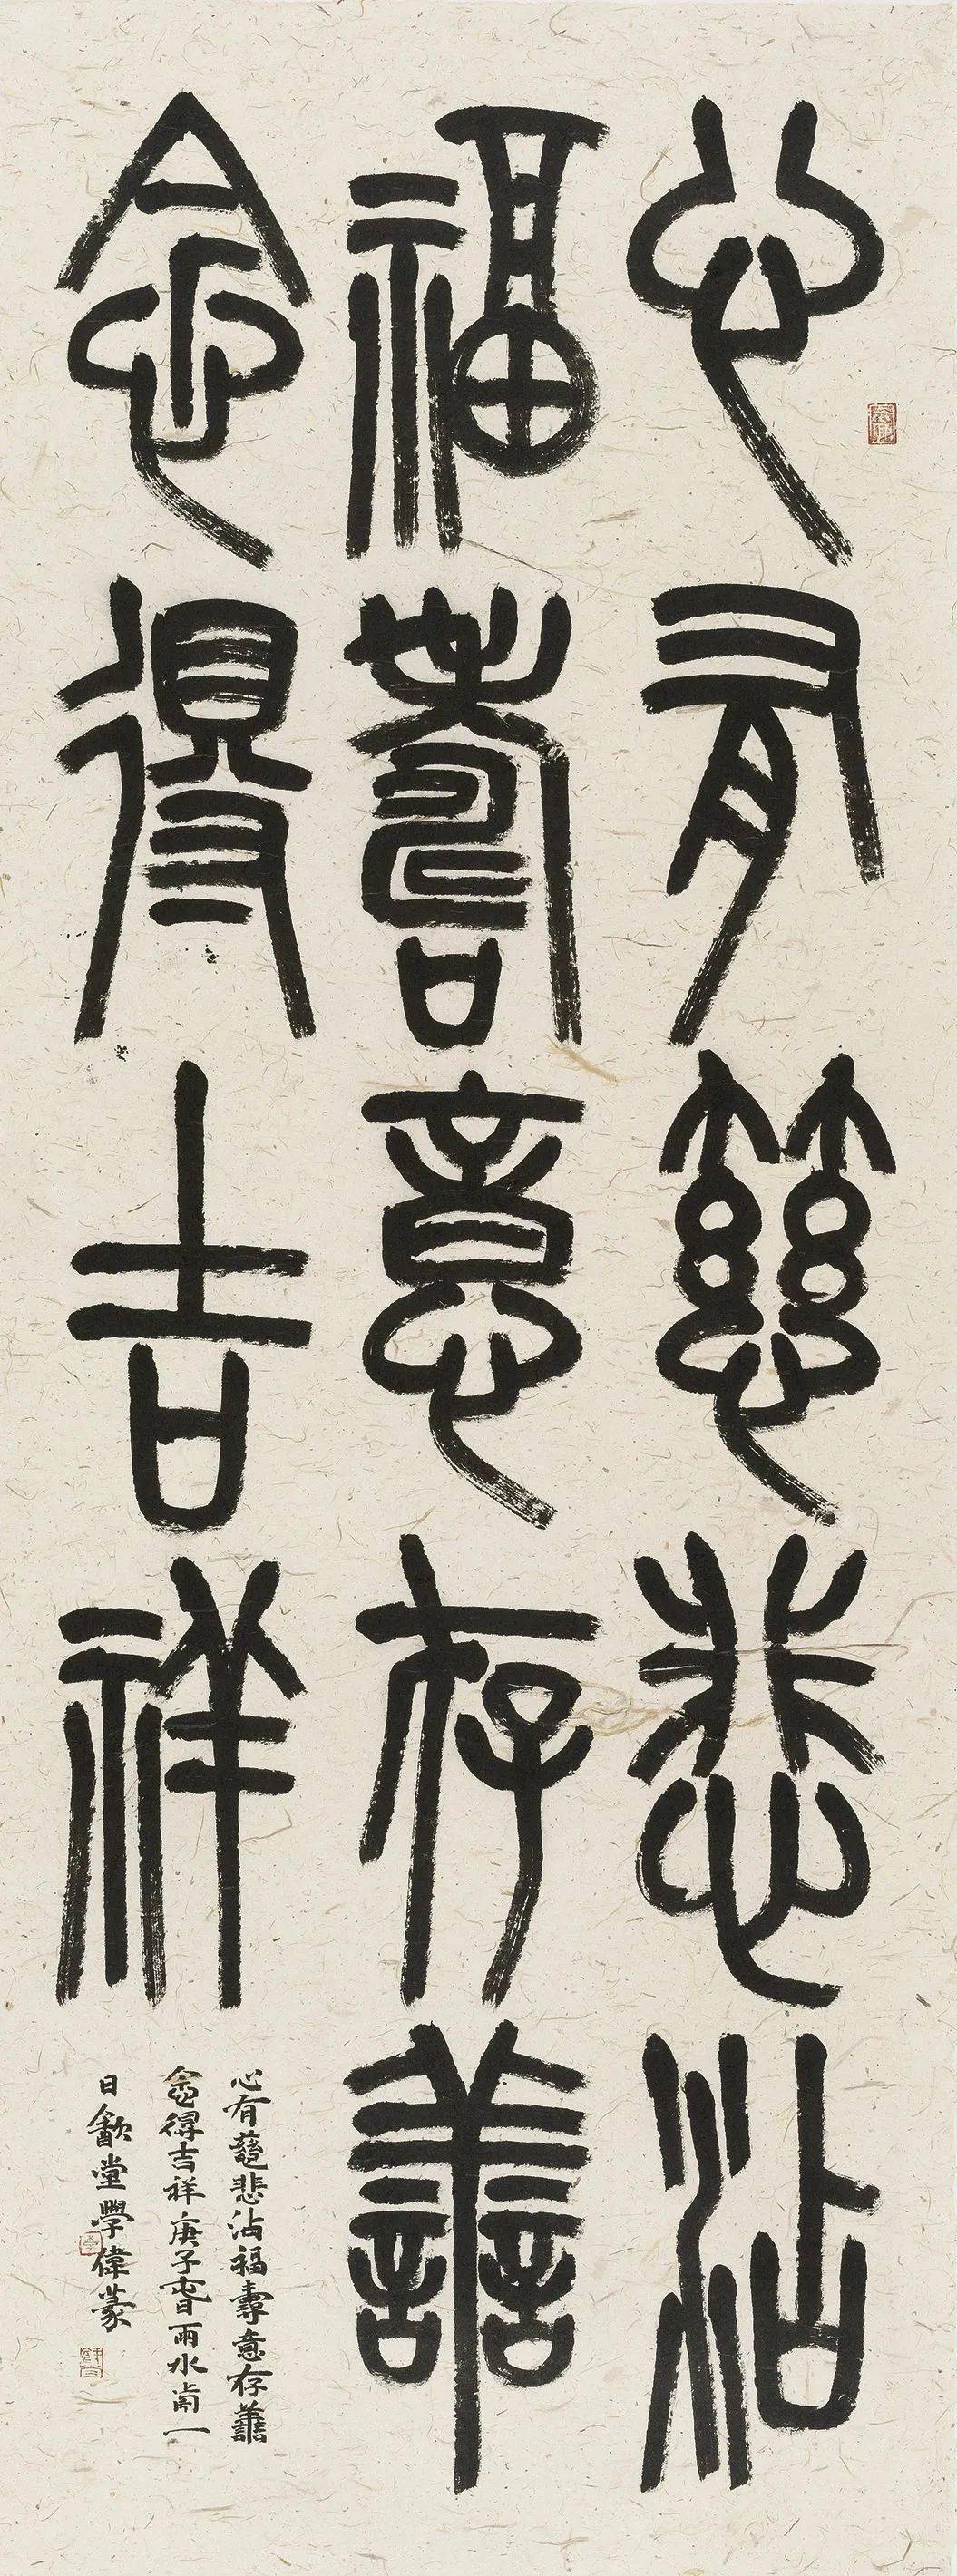 心有慈悲沾
福壽意存善
念得吉祥
心有慈悲沾福壽意存善
念得吉祥庚子春雨水前一
日歙堂學偉篆